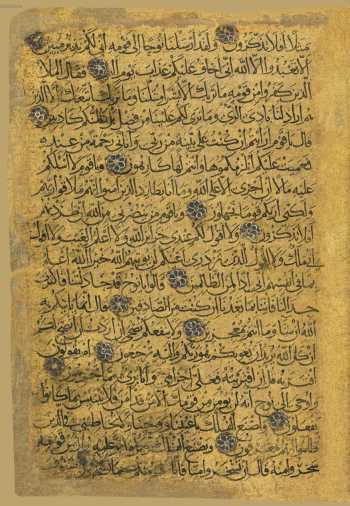 مثلا أفلا تذكرون ولقد أرسلنا نوحا إلى قومه إني لكم نذير مبين
أن لا تعبدوا إلا الله إني أخاف عليكم عذاب يوم أليم فقال الملأ
الذين كفروا من قومه ما نراك إلا بشرا مثلنا وما نراك اتبعك إلا الذين
هم أراذلنا بادي الرأي وما نرى لكم علينا من فضل بل نظنكم كاذبين
قال يا قوم أرأيتم إن كنت على بينة من ربي وآتاني رحمة من عنده
فعميت عليكم أنلزمكموها وأنتم لها كارهون ويا قوم لا أسألكم
عليه مالا إن أجري إلا على الله وما أنا بطارد الذين آمنوا إنهم ملاقوا ربهم
ولكني أراكم قوما تجهلون ويا قوم من ينصرني من الله إن طردتهم
أفلا تذكرون ولا أقول لكم عندي خزائن الله ولا أعلم الغيب ولا أقول
إني ملك ولا أقول للذين تزدري أعينكم لن يؤتيهم الله خيرا الله أعلم
بما في أنفسهم إني إذا لمن الظالمين قالوا يا نوح قد جادلتنا فأكثرت
جدالنا فأتنا بما تعدنا إن كنت من الصادقين قال إنما يأتيكم به
الله إن شاء وما أنتم بمعجزين ولا ينفعكم نصحي إن أردت أن أنصح لكم
إن كان الله يريد أن يغويكم هو ربكم وإليه ترجعون أم يقولون
افتراه قل إن افتريته فعلي إجرامي وأنا بريء مما تجرمون
وأوحي إلى نوح أنه لن يؤمن من قومك إلا من قد آمن فلا تبتئس بما كانوا
يفعلون واصنع الفلك بأعيننا ووحينا ولا تخاطبني في الذين
ظلموا إنهم مغرقون ويصنع الفلك وكلما مر عليه ملأ من قومه
سخروا منه قال إن تسخروا منا فإنا نسخر منكم كما تسخرون